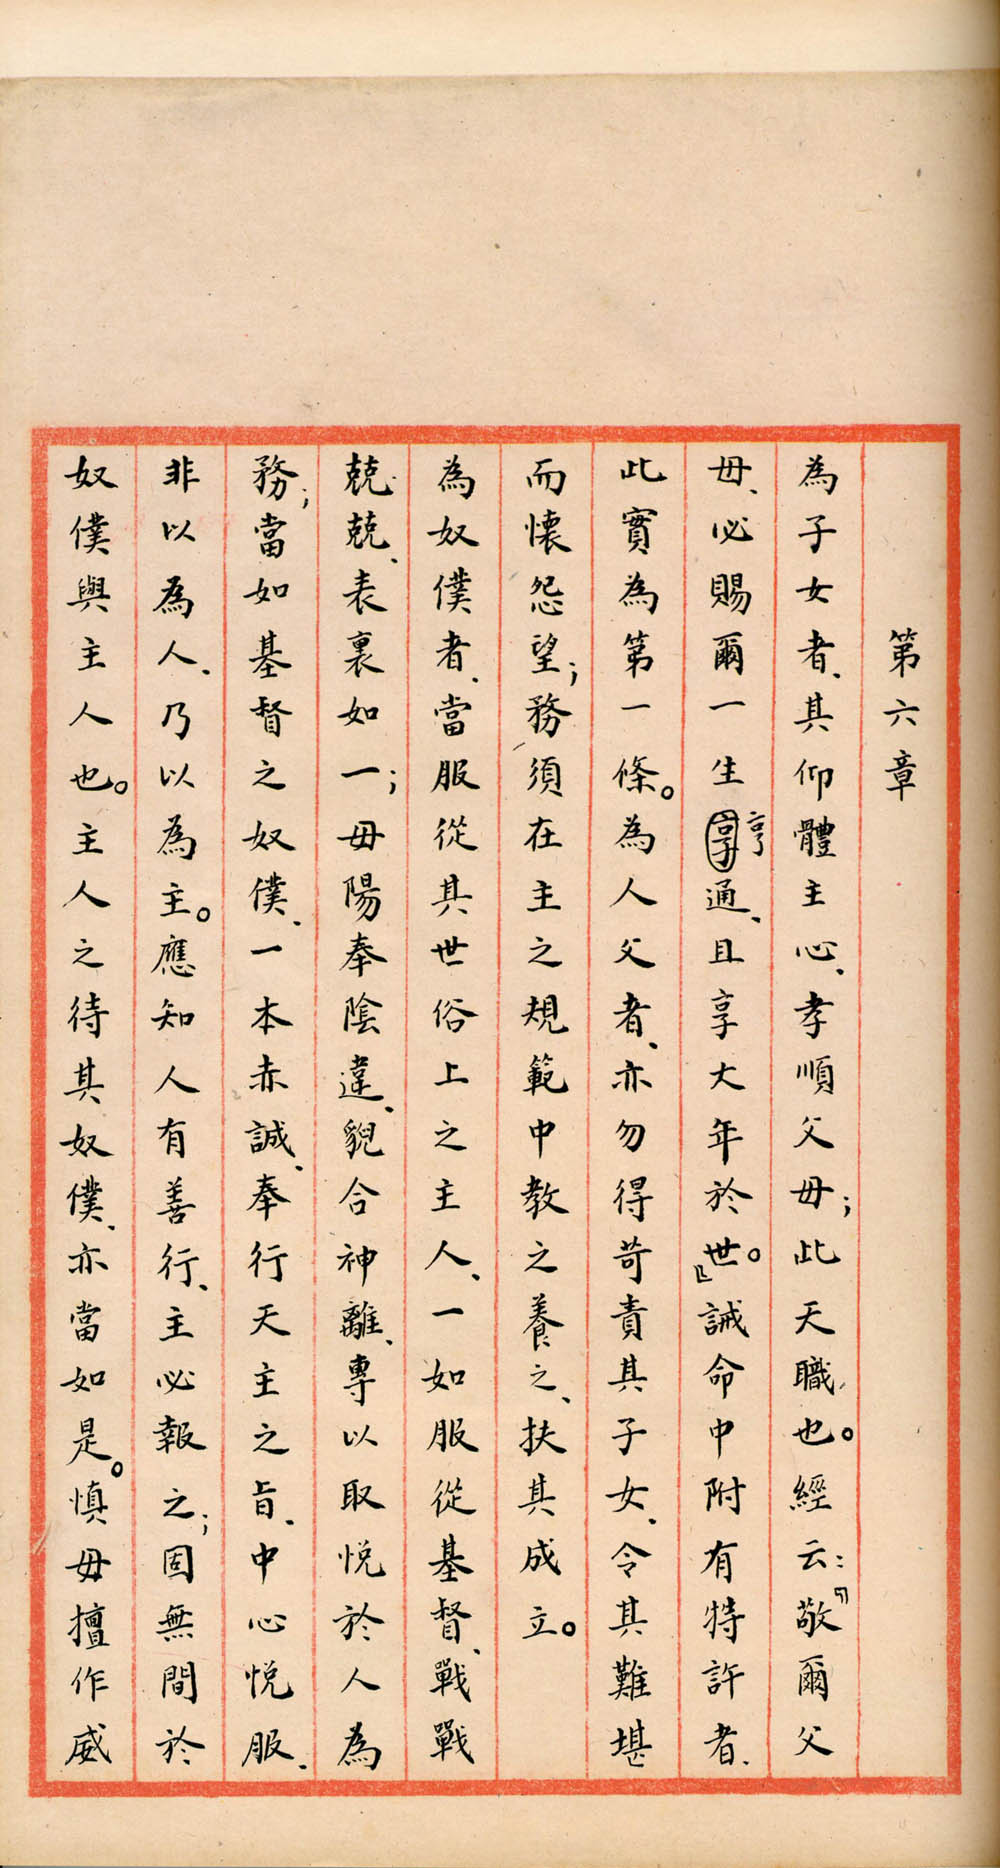 第六章
為子女者、其仰體主心、孝順父毋；此天職也。經云：『敬爾父
毋、必賜爾一生享亨通、且享大年於世。』誡命中附有特許者、
此實為第一條。為人父者、亦勿得苛責其子女、令其難堪
而懷怨望；務須在主之規範中教之養之、扶其成立。
為奴僕者、當服從其世俗上之主人、一如服從基督、戰戰
兢兢、表裏如一；毋陽奉陰違、貌合神離、專以取悅於人為
務；當如基督之奴僕、一本赤誠、奉行天主之旨、中心悅服、
非以為人、乃以為主。應知人有善行、主必報之；固無間於
奴僕與主人也。主人之待其奴僕、亦當如是。慎毋擅作威